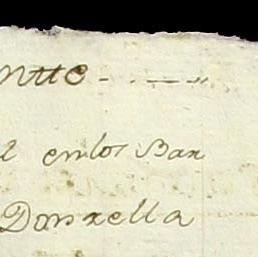 ntte - . - — „
l enlos Bar
Donzella